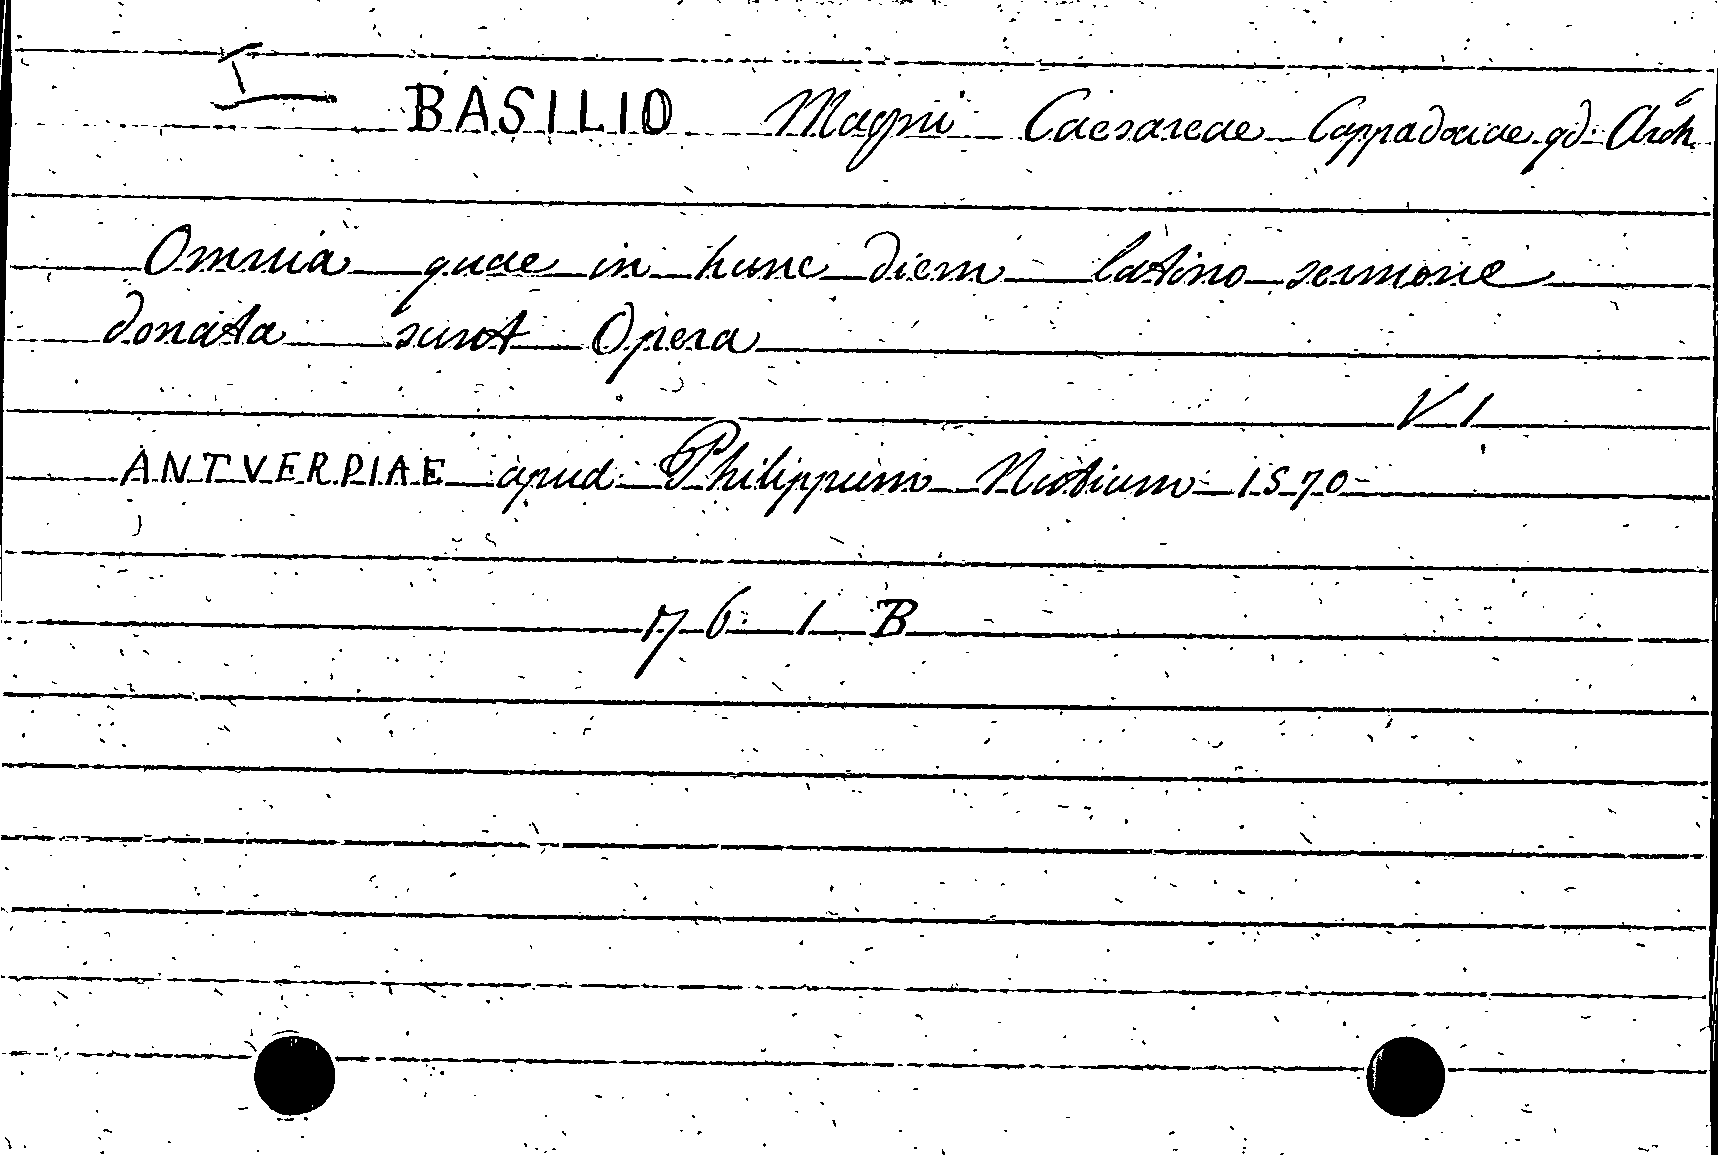 BASILIO Magni Caesareae Cappadociae qd. Arch
Omnia quae in hunc diem latino sermone
donata sunt Opera
V 1
ANTVERPIAE apud Philippum Nutium 1570
76 1 B